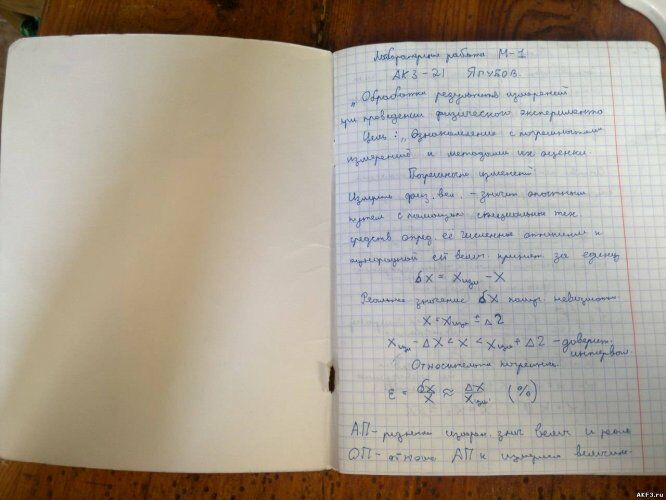 Лабораторная работа М-1
АК3-21 Ягубов.
„Обработка результатов измерений
при проведении физического эксперимента
Цель: „Ознакомление с погрешностями
измерений и методами их оценки.
Погрешность измерений
Измерить физ. вел. - значит опытным
путем с помощью специальных тех
средств опред. её численное отношение к
однородной ей велич. принят за единиц
δX = Xизм - X
Реальное значение δX невозможно
X = Xизм ± Δ2
Xизм - ΔX < X < Xизм + Δ2 - доверит.
интервал.
Относительная погрешность
ε = δX/X ≈ ΔX/Xизм (%)
АП - измер. знач велич и
ОП - АП к величин
AKF3.ru